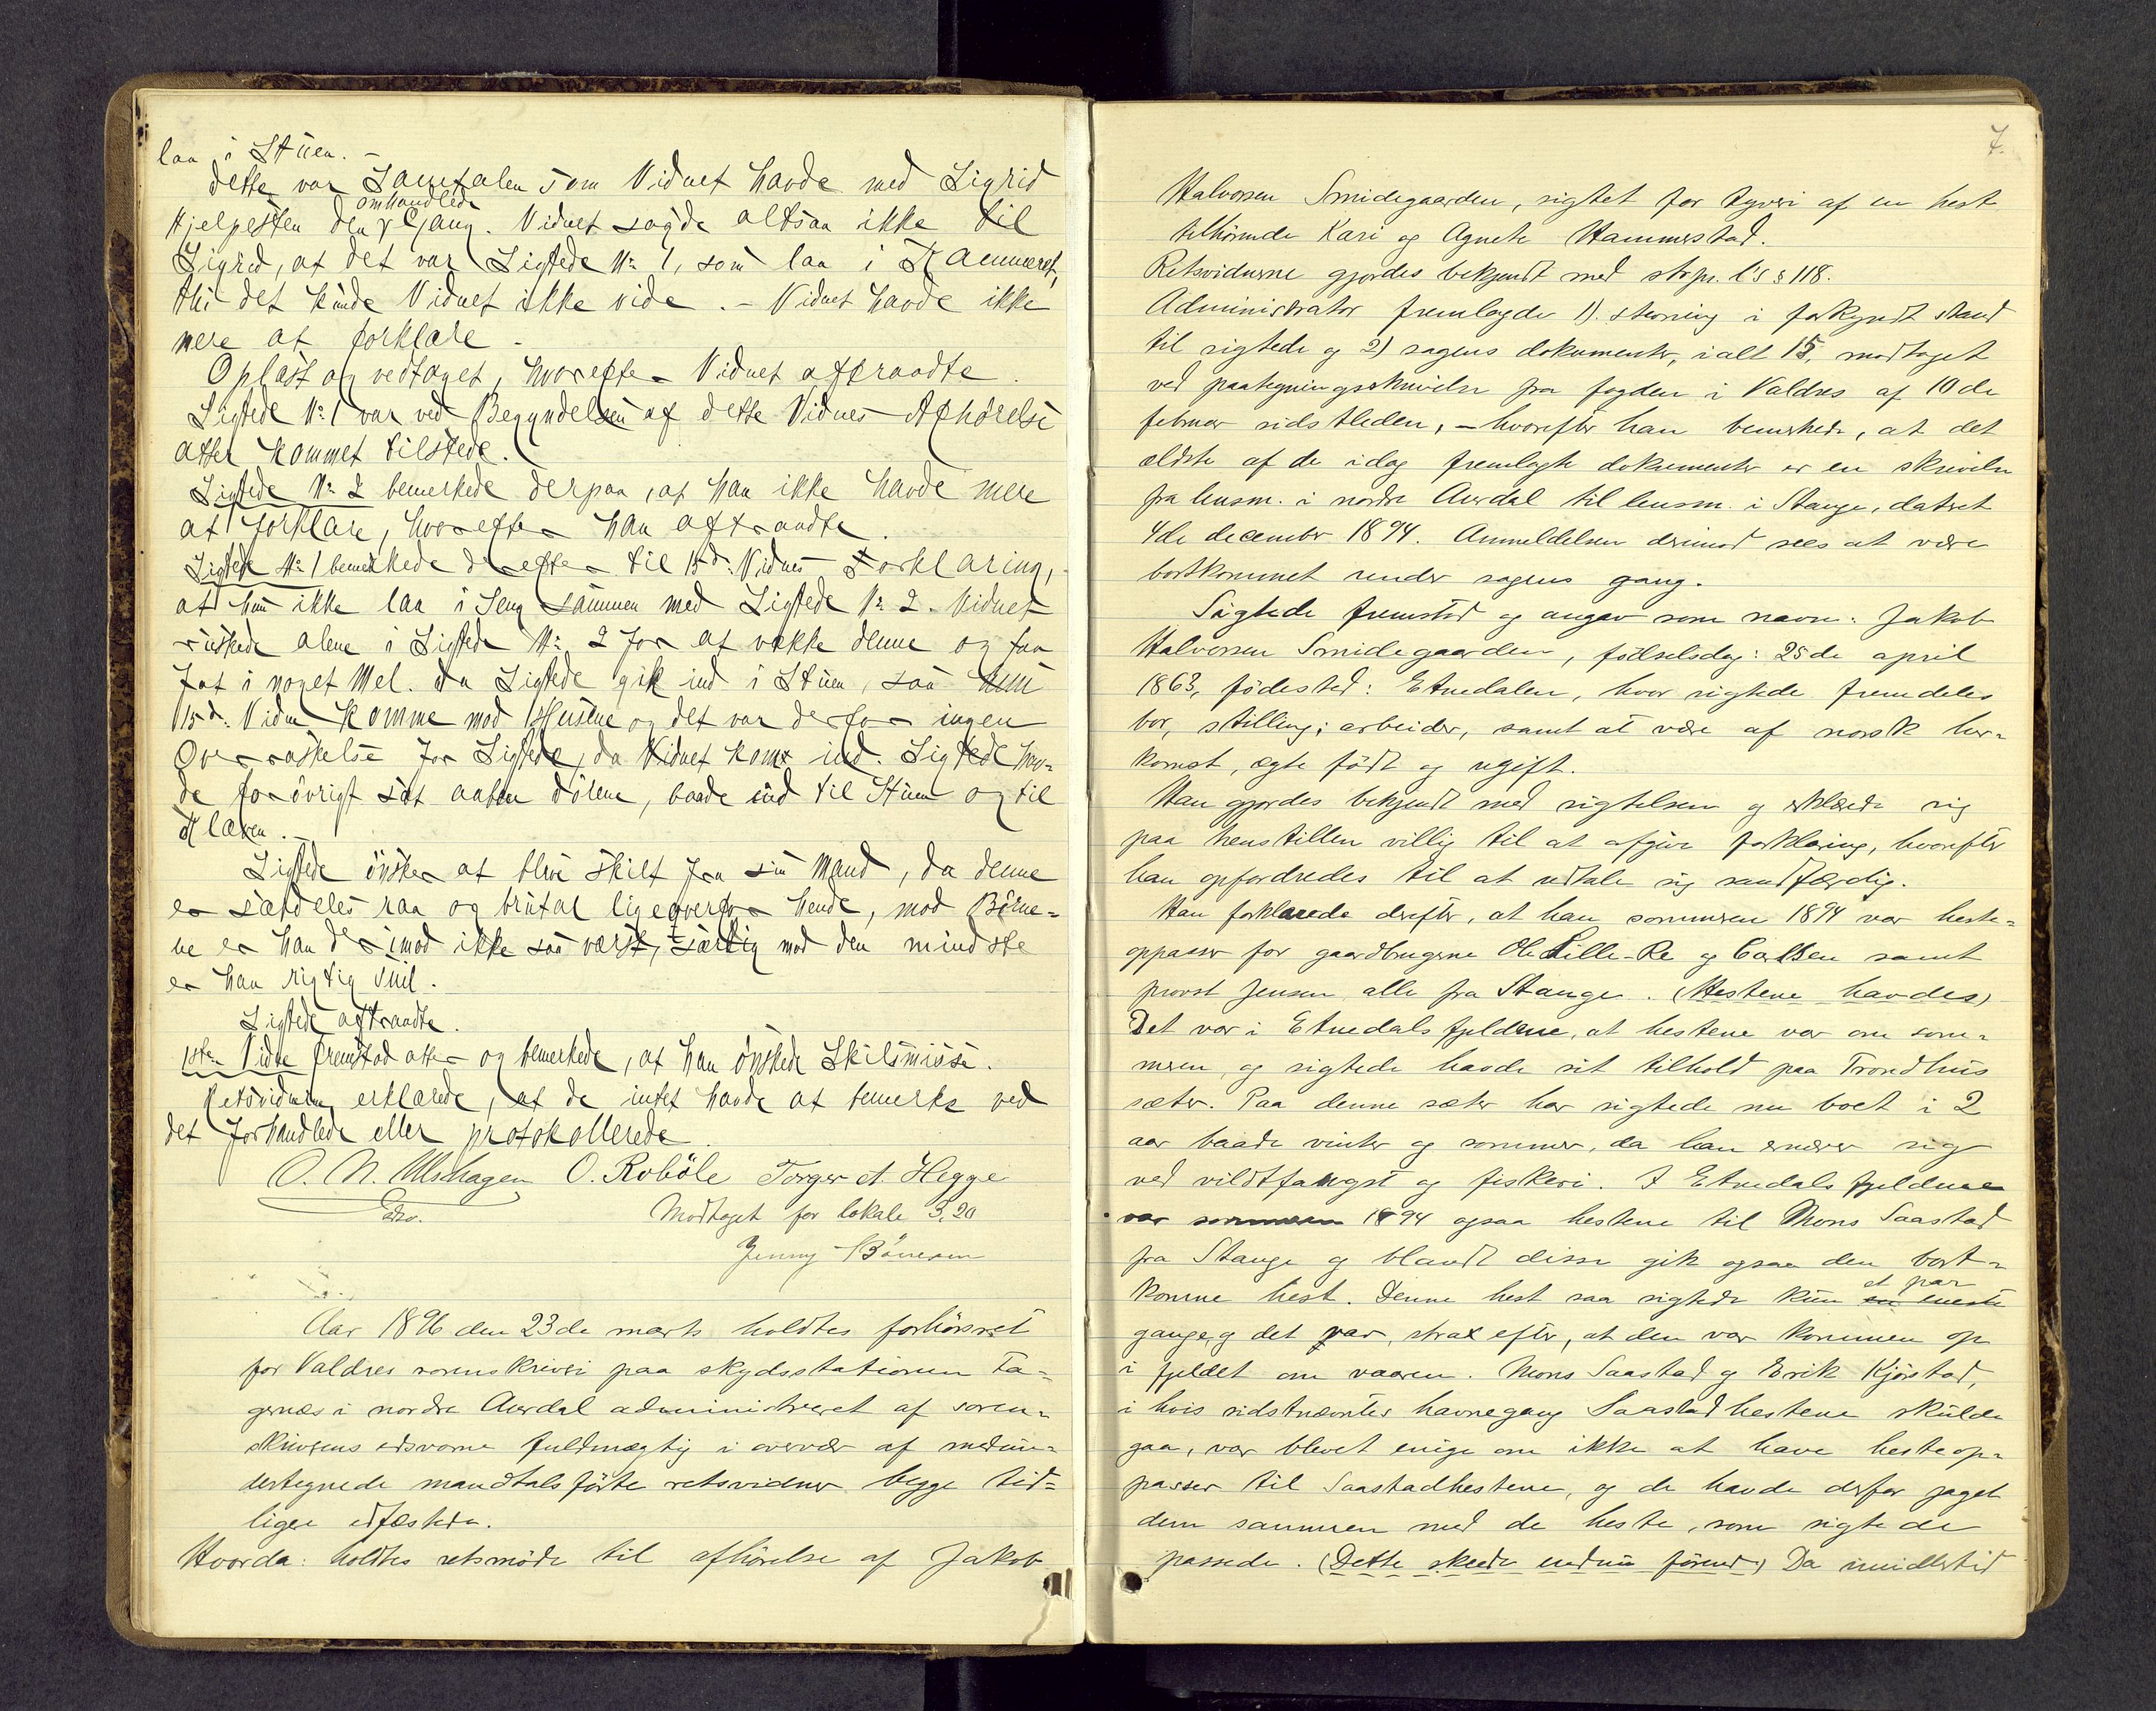 laa i Stuen. -
Dette var Samtalen som Vidnet havde med Sigrid
Hjelpesten den omhandlede Gang. Vidnet sagde altsaa ikke til
Sigrid, at det var Sigtede No 1, som laa i Kammeret,
thi det kunde Vidnet ikke vide. - Vidnet havde ikke
mere at forklare -
Oplæst og vedtaget, hvorefter Vidnet aftraadte.
Sigtede No 1 var ved Begyndelsen af dette Vidnes Afhørelse
atter kommet tilstede.
Sigtede No 2 bemerkede derpaa, at han ikke havde mere
at forklare, hvorefter han aftraadte.
Sigtede No 1 bemerkede derefter til 15de Vidnes Forklaring,
at hun ikke laa i Seng sammen med Sigtede No 2. Vidnet
ruskede alene i Sigtede No 2 for at vække denne og faa
fat i noget Mel. Da Sigtede gik ind i Stuen, saa hun
15de Vidne komme mod Husene og det var derfor ingen
Overraskelse for Sigtede, da Vidnet kom ind. Sigtede hav-
de forøvrigt sat aaben dørene, baade ind til Stuen og til
Kløven. -
Sigtede ønsker at blive skilt fra sin Mand, da denne
er særdeles raa og brutal ligeoverfor hende, mod Børne-
ne er han derimod ikke saa værst, særlig mod den mindste
er han rigtig snil.
Sigtede aftraadte.
1ste Vidne fremstod atter og bemerkede, at han ønskede Skilsmisse.
Retsvidnerne erklærede, at de intet havde at bemerke ved
det forhandlede eller protokollerede.
O. N. Ulshagen O. Robøle Torger A. Hegge
Edsv. Modtaget for lokale 3,20
Jenny Bönesen
Aar 1896 den 23de marts holdtes forhørsret
for Valdres sorenskriveri paa skydsstationen Fa-
gernæs i nordre Aurdal administreret af soren-
skriverens edsvorne fuldmægtig i overvær af medun-
dertegnede mandtalsførte retsvidner begge tid-
ligere edfæstede.
Hvorda: holdtes retsmøde til afhørelse af Jakob
7.
Halvorsen Smidegaarden, sigtet for tyveri af en hest
tilhørende Kari og Agnete Hammerstad.
Retsvidnerne gjordes bekjendt med strpr. l's § 118.
Administrator fremlagde 1). stevning i forkyndt stand
til sigtede og 2) sagens dokumenter, ialt 15, modtaget
ved paategningsskrivelse fra fogden i Valdres af 10de
februar sidstleden, - hvorefter han bemerkede, at det
ældste af de idag fremlagte dokumenter er en skrivelse
fra lensm. i nordre Aurdal til lensm. i Stange, datert
4de december 1894. Anmeldelsen derimod sees at være
bortkommet under sagens gang.
Sigtede fremstod og angav som navn: Jakob
Halvorsen Smidegaarden, fødselsdag: 25de april
1863, fødested: Etnedalen, hvor sigtede fremdeles
bor, stilling: arbeider, samt at være af norsk her-
komst, ægte født og ugift.
Han gjordes bekjendt med sigtelsen og erklærede sig
paa henstillen villig til at afgive forklaring, hvorefter
han opfordredes til at udtale sig sandfærdig.
Han forklarede derefter, at han sommeren 1894 var heste-
oppasser for gaardbrugerne Ole Lille-Re og Carlsen samt
provst Jensen alle fra Stange. (Hestene havdes)
Det var i Etnedalsfjeldene, at hestene var om som-
meren, og sigtede havde sit tilhold paa Trondhus
sæter. Paa denne sæter har sigtede nu boet i 2
aar baade vinter og sommer, da han ernærer sig
ved vildtfangst og fiskeri. I Etnedalsfjeldene
var sommeren 1894 ogsaa hestene til Mons Saastad
fra Stange og blandt disse gik ogsaa den bort-
komne hest. Denne hest saa sigtede kun en eneste et par
gange, og det var, strax efter, at den var kommen op
i fjeldet om vaaren. Mons Saastad og Erik Kjørstad,
i hvis sidstnævntes havnegang Saastadhestene skulde
gaa, var blevet enige om ikke at have hesteop-
passer til Saastadhestene, og de havde derfor jaget
dem sammen med de heste, som sigtede
passede. (Dette skede endnu førend) Da imidlertid